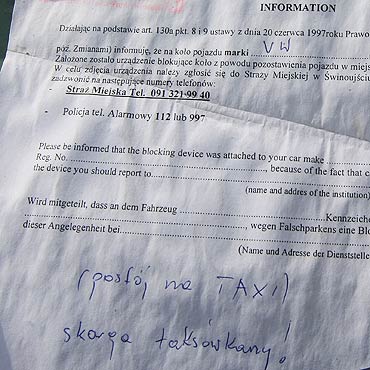 INFORMATION
Działając na podstawie art. 130a pkt. 8 i 9 ustawy z dnia 20 czerwca 1997roku Prawo
poz. Zmianami) informuję, że na koło pojazdu marki VW
Założone zostało urządzenie blokujące koło z powodu pozostawienia pojazdu w miejs
W celu zdjęcia urządzenia należy zgłosić się do Straży Miejskiej w Świnoujści
zadzwonić na następujące numery telefonów:
- Straż Miejska Tel. 091 321 99 40
- Policja tel. Alarmowy 112 lub 997
Please be informed that the blocking device was attached to your car make
Reg. No. ..., because of the fact that c
the device you should report to
(name and addres of the institution)
Wird mitgeteilt, dass an dem Fahrzeug ... Kennzeiche
... wegen Falschparkens eine Blo
dieser Angelegenheit bei
(Name und Adresse der Dienststelle
(postój na TAXI)
skarga taksówkarzy!